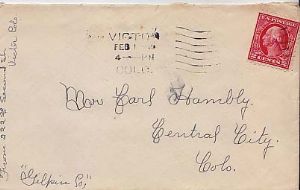 VICTOR
FEB
COLO.
U.S. POSTAGE
2 CENTS 2
Mr Carl Hambly.
Central City.
Colo.
"Gilpin Co,"
From
Second St
Victor Colo